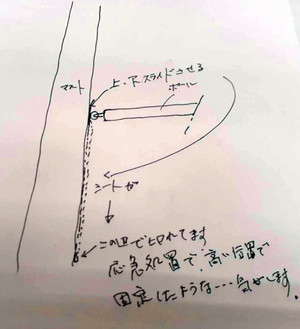 マスト
上・下スライドさせる
ポール
シートが
この上で切れてます
応急処置で、高い位置で
固定したような…気がします。